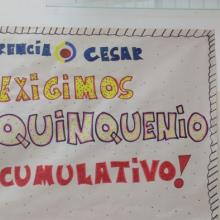 RENCIA CESAR
EXIGIMOS
QUINQUENIO
CUMULATIVO!